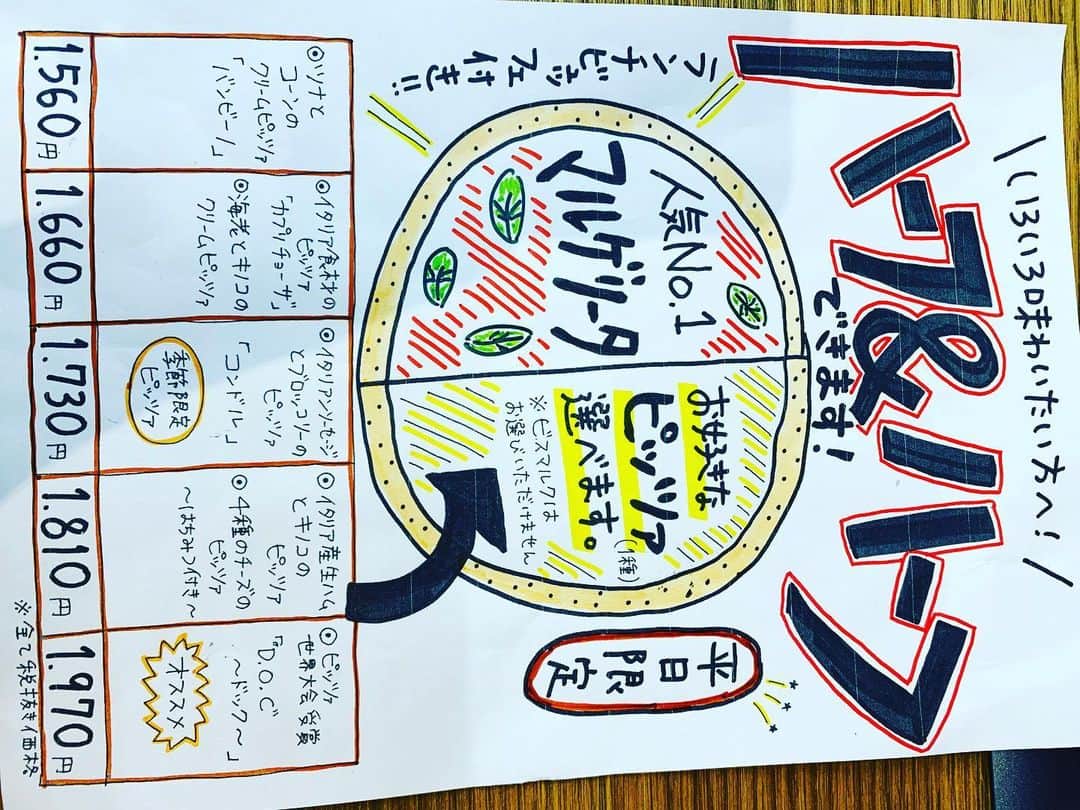 \いろいろ味わいたい方へ!/
ハーフ&ハーフ
できます!
ランチ
ビュッフェ
付き!!
平日
限定
人気No.1
マルゲリータ
お好きな
ピッツァ(1種)
選べます。
※ビスマルクは
お選びいただけません
◎ツナと
コーンの
クリームピッツァ
「バンビーノ」
1.560円
◎イタリア食材の
ピッツァ
「カプリチョーザ」
◎海老とキノコの
クリームピッツァ
1.660円
◎イタリアンソーセージ
とブロッコリーの
ピッツァ
「コンドル」
季節限定
ピッツァ
1.730円
◎イタリア産生ハム
とキノコの
ピッツァ
◎4種のチーズの
ピッツァ
〜はちみつ付き〜
1.810円
◎ピッツァ
世界大会受賞
「D.O.C」
〜ドック〜
オススメ
1.970円
※全て税抜き価格